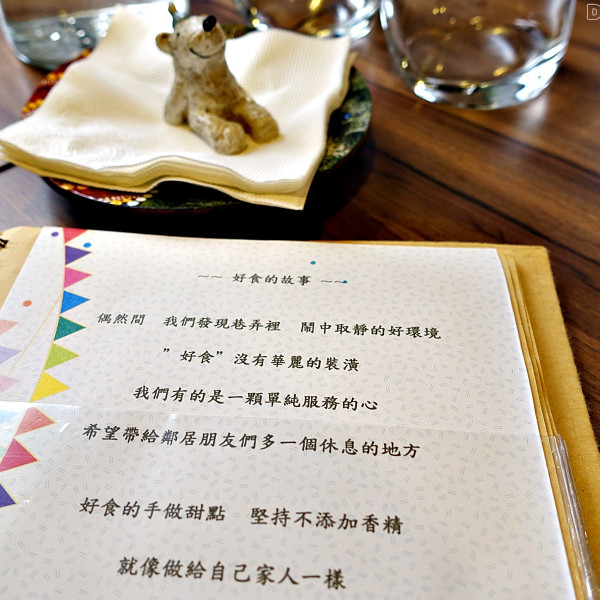 ~~ 好食的故事 ~~
偶然間　我們發現巷弄裡　鬧中取靜的好環境
”好食”沒有華麗的裝潢
我們有的是一顆單純服務的心
希望帶給鄰居朋友們多一個休息的地方
好食的手做甜點　堅持不添加香精
就像做給自己家人一樣